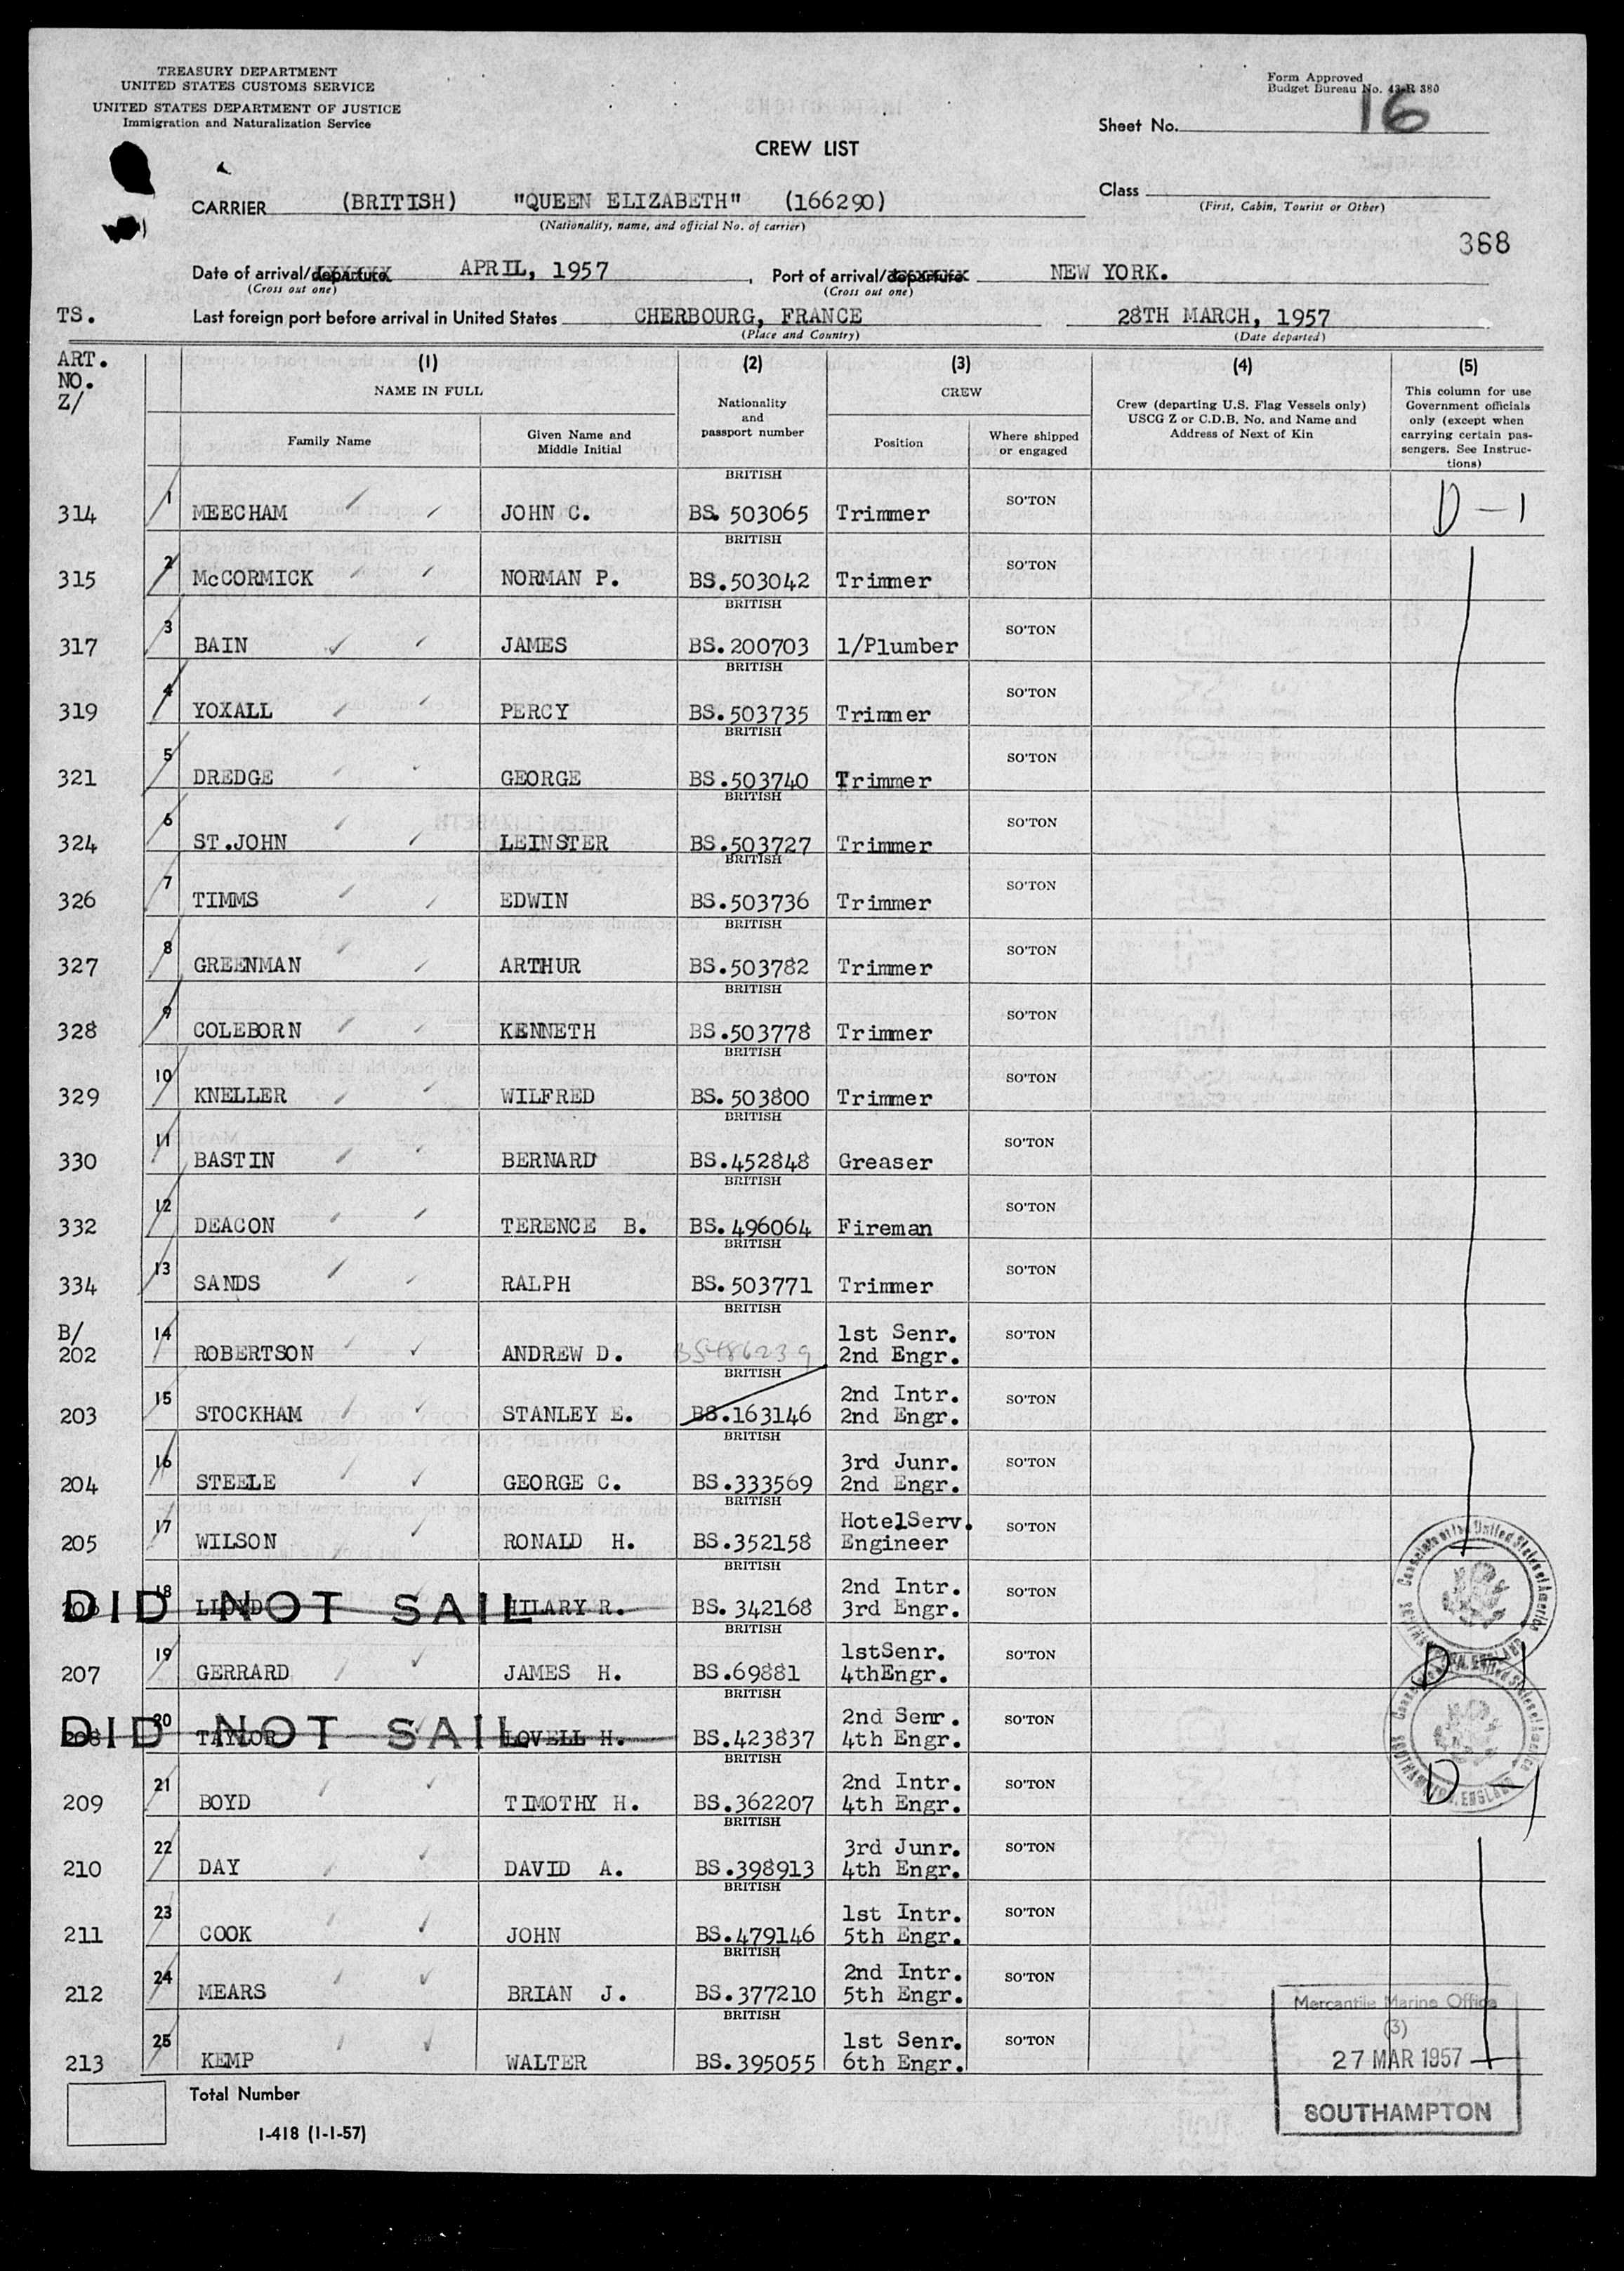 TREASURY DEPARTMENT
UNITED STATES CUSTOMS SERVICE
UNITED STATES DEPARTMENT OF JUSTICE
Immigration and Naturalization Service
Form Approved
Budget Bureau No. 43-R 380
Sheet No. 16
CREW LIST
Class
(First, Cabin, Tourist or Other)
CARRIER (BRITISH) "QUEEN ELIZABETH" (166290)
(Nationality, name, and official No. of carrier)
368
Date of arrival/departure APRIL, 1957, Port of arrival/departure NEW YORK.
(Cross out one) (Cross out one)
TS. Last foreign port before arrival in United States CHERBOURG, FRANCE 28TH MARCH, 1957
(Place and Country) (Date departed)
ART. NO. Z/
(1) (2) (3) (4) (5)
NAME IN FULL
Family Name
Given Name and Middle Initial
Nationality and passport number
CREW
Position
Where shipped or engaged
Crew (departing U.S. Flag Vessels only)
USCG Z or C.D.B. No. and Name and
Address of Next of Kin
This column for use
Government officials
only (except when
carrying certain pas-
sengers. See Instruc-
tions)
314 1 MEECHAM JOHN C. BRITISH BS. 503065 Trimmer SO'TON D-1
315 2 McCORMICK NORMAN P. BRITISH BS.503042 Trimmer SO'TON
317 3 BAIN JAMES BRITISH BS.200703 1/Plumber SO'TON
319 4 YOXALL PERCY BRITISH BS.503735 Trimmer SO'TON
321 5 DREDGE GEORGE BRITISH BS.503740 Trimmer SO'TON
324 6 ST.JOHN LEINSTER BRITISH BS.503727 Trimmer SO'TON
326 7 TIMMS EDWIN BRITISH BS.503736 Trimmer SO'TON
327 8 GREENMAN ARTHUR BRITISH BS.503782 Trimmer SO'TON
328 9 COLEBORN KENNETH BRITISH BS.503778 Trimmer SO'TON
329 10 KNELLER WILFRED BRITISH BS. 503800 Trimmer SO'TON
330 11 BASTIN BERNARD BRITISH BS.452848 Greaser SO'TON
332 12 DEACON TERENCE B. BRITISH BS.496064 Fireman SO'TON
334 13 SANDS RALPH BRITISH BS.503771 Trimmer SO'TON
B/ 202 14 ROBERTSON ANDREW D. BRITISH BS486239 1st Senr. 2nd Engr. SO'TON
203 15 STOCKHAM STANLEY E. BRITISH BS.163146 2nd Intr. 2nd Engr. SO'TON
204 16 STEELE GEORGE C. BRITISH BS.333569 3rd Junr. 2nd Engr. SO'TON
205 17 WILSON RONALD H. BRITISH BS.352158 HotelServ. Engineer SO'TON
206 18 LLOYD HILARY R. BRITISH BS. 342168 2nd Intr. 3rd Engr. SO'TON
DID NOT SAIL
207 19 GERRARD JAMES H. BRITISH BS.69881 1stSenr. 4thEngr. SO'TON D-1
208 20 TAYLOR LOVELL H. BRITISH BS.423837 2nd Senr. 4th Engr. SO'TON
DID NOT SAIL
209 21 BOYD TIMOTHY H. BRITISH BS.362207 2nd Intr. 4th Engr. SO'TON D-1
210 22 DAY DAVID A. BRITISH BS.398913 3rd Junr. 4th Engr. SO'TON
211 23 COOK JOHN BRITISH BS.479146 1st Intr. 5th Engr. SO'TON
212 24 MEARS BRIAN J. BRITISH BS.377210 2nd Intr. 5th Engr. SO'TON
213 25 KEMP WALTER BRITISH BS.395055 1st Senr. 6th Engr. SO'TON
Consulate of the United States of America
SOUTHAMPTON, ENGLAND
Consulate of the United States of America
SOUTHAMPTON, ENGLAND
Mercantile Marine Office
(3)
27 MAR 1957
SOUTHAMPTON
Total Number
I-418 (1-1-57)